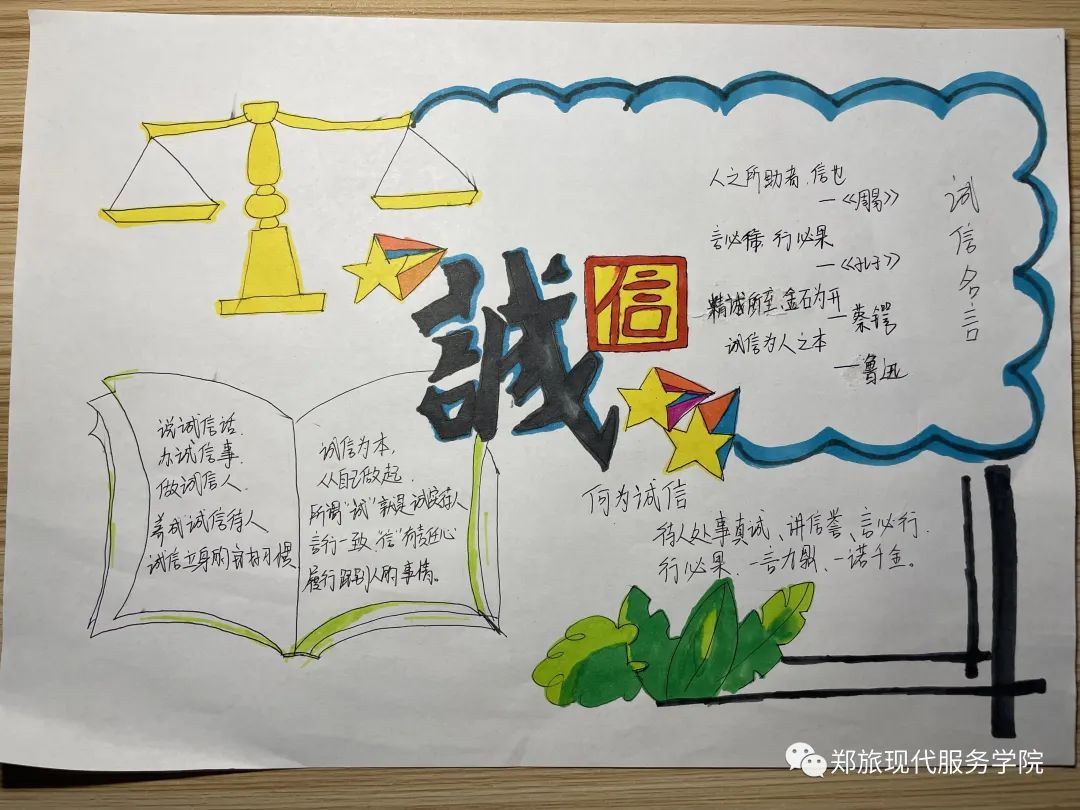 誠信
诚信名言
人之所助者,信也
—《周易》
言必信,行必果
—《孔子》
精诚所至,金石为开
—蔡锷
诚信为人之本
—鲁迅
说诚信话,
办诚信事,
做诚信人,
养成诚信待人
诚信立身的良好习惯
诚信为本,
从自己做起,
所谓"诚"就是诚实待人
言行一致,"信"有责任心
履行 人的事情。
何为诚信
待人处事真诚、讲信誉、言必行、
行必果、一言九鼎、一诺千金。
郑旅现代服务学院